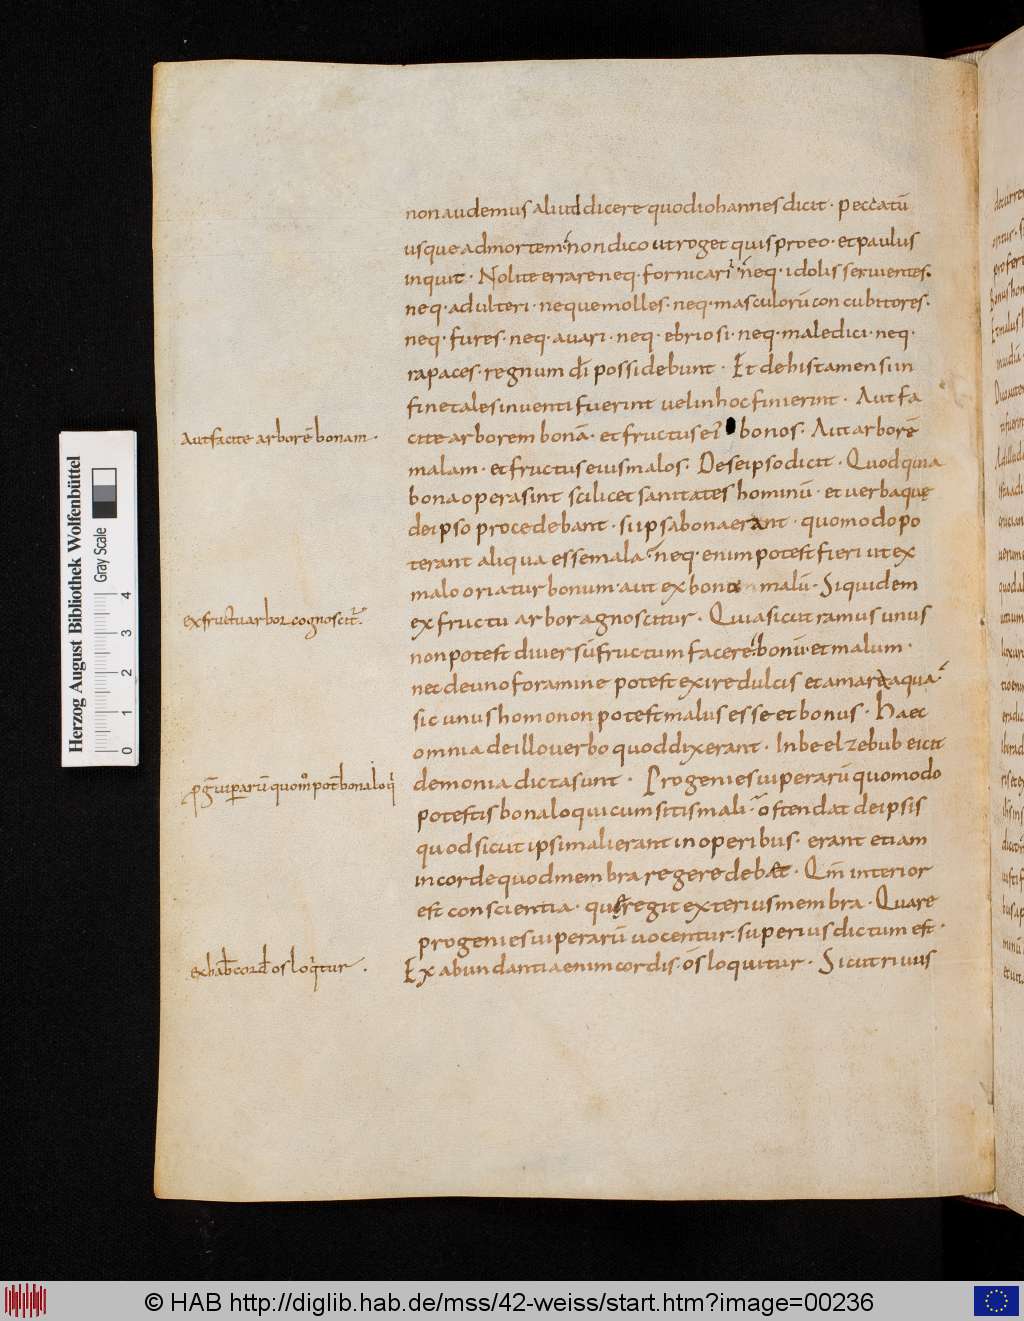 non audemus aliud dicere quod iohannes dicit · peccatū
usque ad mortem · non dico ut roget quis pro eo · et paulus
inquit · Nolite errare neq· fornicari neq· idolis seruientes·
neq· adulteri · neque molles · neq· masculorū concubitores·
neq· fures · neq· auari · neq· ebriosi · neq· maledici · neq·
rapaces · regnum dī possidebunt · Et de his tamen si in
fine tales inuenti fuerint uel in hoc finierint · Aut fa
Aut facite arborē bonam ·
cite arborem bonā · et fructus ei' bonos · Aut arborē
malam · et fructus eius malos · De se ipso dicit · Quod quia
bona opera sint scilicet sanitates hominū · et uerba que
de ipso procedebant · si ipsa bona erant · quomodo po
terant aliqua esse mala · neq· enim potest fieri ut ex
malo oriatur bonum · aut ex bono malū · Siquidem
ex fructu arbor cognoscit̄
ex fructu arbor agnoscitur · Quia sicut ramus unus
non potest diuersū fructum facere · bonū et malum ·
nec de uno foramine potest exire dulcis et amara aqua
sic unus homo non potest malus esse et bonus · Haec
omnia de illo uerbo quod dixerant · In beelzebub eicit
ꝓḡ uiꝑarū quom° pot̄ bona loqⁱ
demonia dicta sunt · Progenies uiperarū quomodo
potestis bona loqui cum sitis mali · ostendat de ipsis
quod sicut ipsi mali erant in operibus · erant etiam
in corde quod membra regere debet · Qm̄ interior
est conscientia · que regit exterius membra · Quare
progenies uiperarū uocentur · superius dictum est ·
ex hab̄ cord̄ os loqⁱtur ·
Ex abundantia enim cordis · os loquitur · Sicut riuus
Herzog August Bibliothek Wolfenbüttel
Gray Scale
0 1 2 3 4
© HAB http://diglib.hab.de/mss/42-weiss/start.htm?image=00236